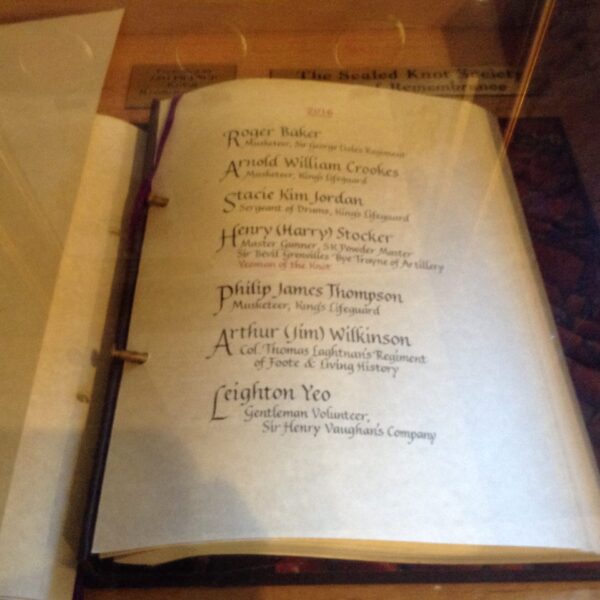 The Sealed Knot Society
of Remembrance
2016
Roger Baker
Musketeer, Sir George Lisles Regiment
Arnold William Crookes
Musketeer, King's Lifeguard
Stacie Kim Jordan
Sergeant of Drums, King's Lifeguard
Henry (Harry) Stocker
Master Gunner, SK Powder Master
Sir Bevil Grenvilles Tye Trayne of Artillery
Yeoman of the Knot
Philip James Thompson
Musketeer, King's Lifeguard
Arthur (Jim) Wilkinson
Col. Thomas Laghtnan's Regiment
of Foote & Living History
Leighton Yeo
Gentleman Volunteer,
Sir Henry Vaughan's Company